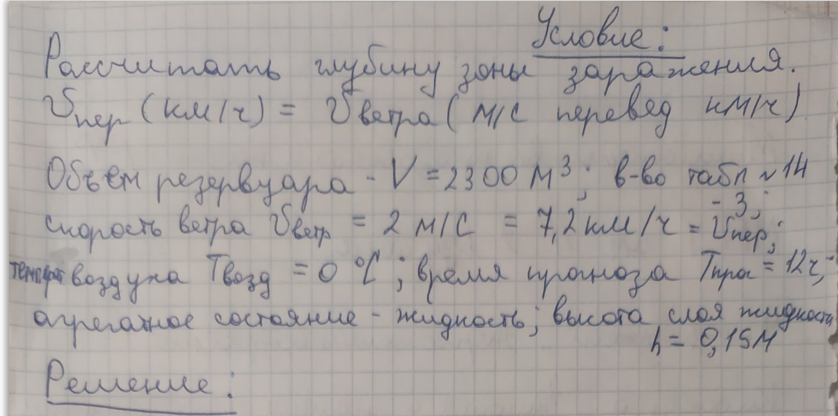 Условие:
Рассчитать глубину зоны заражения.
Vпер (км/ч) = Vветра (м/с перевед км/ч)
Объём резервуара - V = 2300 м³; в-во табл №14
- 3;
скорость ветра Vветр = 2 м/с = 7,2 км/ч = Vпер;
воздуха Tвозд = 0 °C; время прогноза Tпрог = 12ч;
агрегатное состояние - жидкость; высота слоя жидкости
h = 0,15м
Решение: